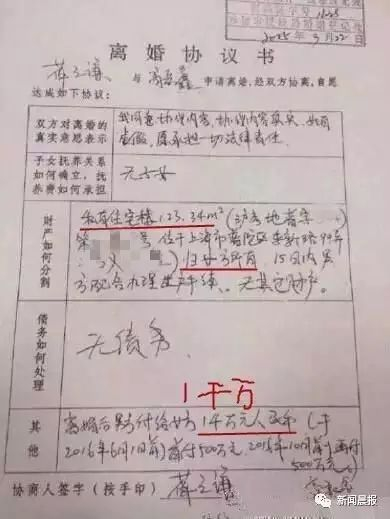 2015年9月22日
离婚协议书
薛之谦 与 高磊鑫 申请离婚,经双方协商,自愿
达成如下协议:
双方对离婚的
真实意思表示
我同意协议内容,协议内容真实,如有
虚假,愿承担一切法律责任
子女抚养关系
如何确立,抚
养费如何承担
无子女
财产如何分割
私有住宅楼123.34m²(沪房地普字
第 号 位于上海市普陀区 99弄
归女方所有 15日内男
方配合办理过户手续。无其它财产。
债务如何处理
无债务
1千万
其他
离婚后男方付给女方1千万元人民币(于
2016年6月1日前)首付500万元 2016年10月前再付
500万元
协商人签字(按手印) 薛之谦 高磊鑫
新闻晨报